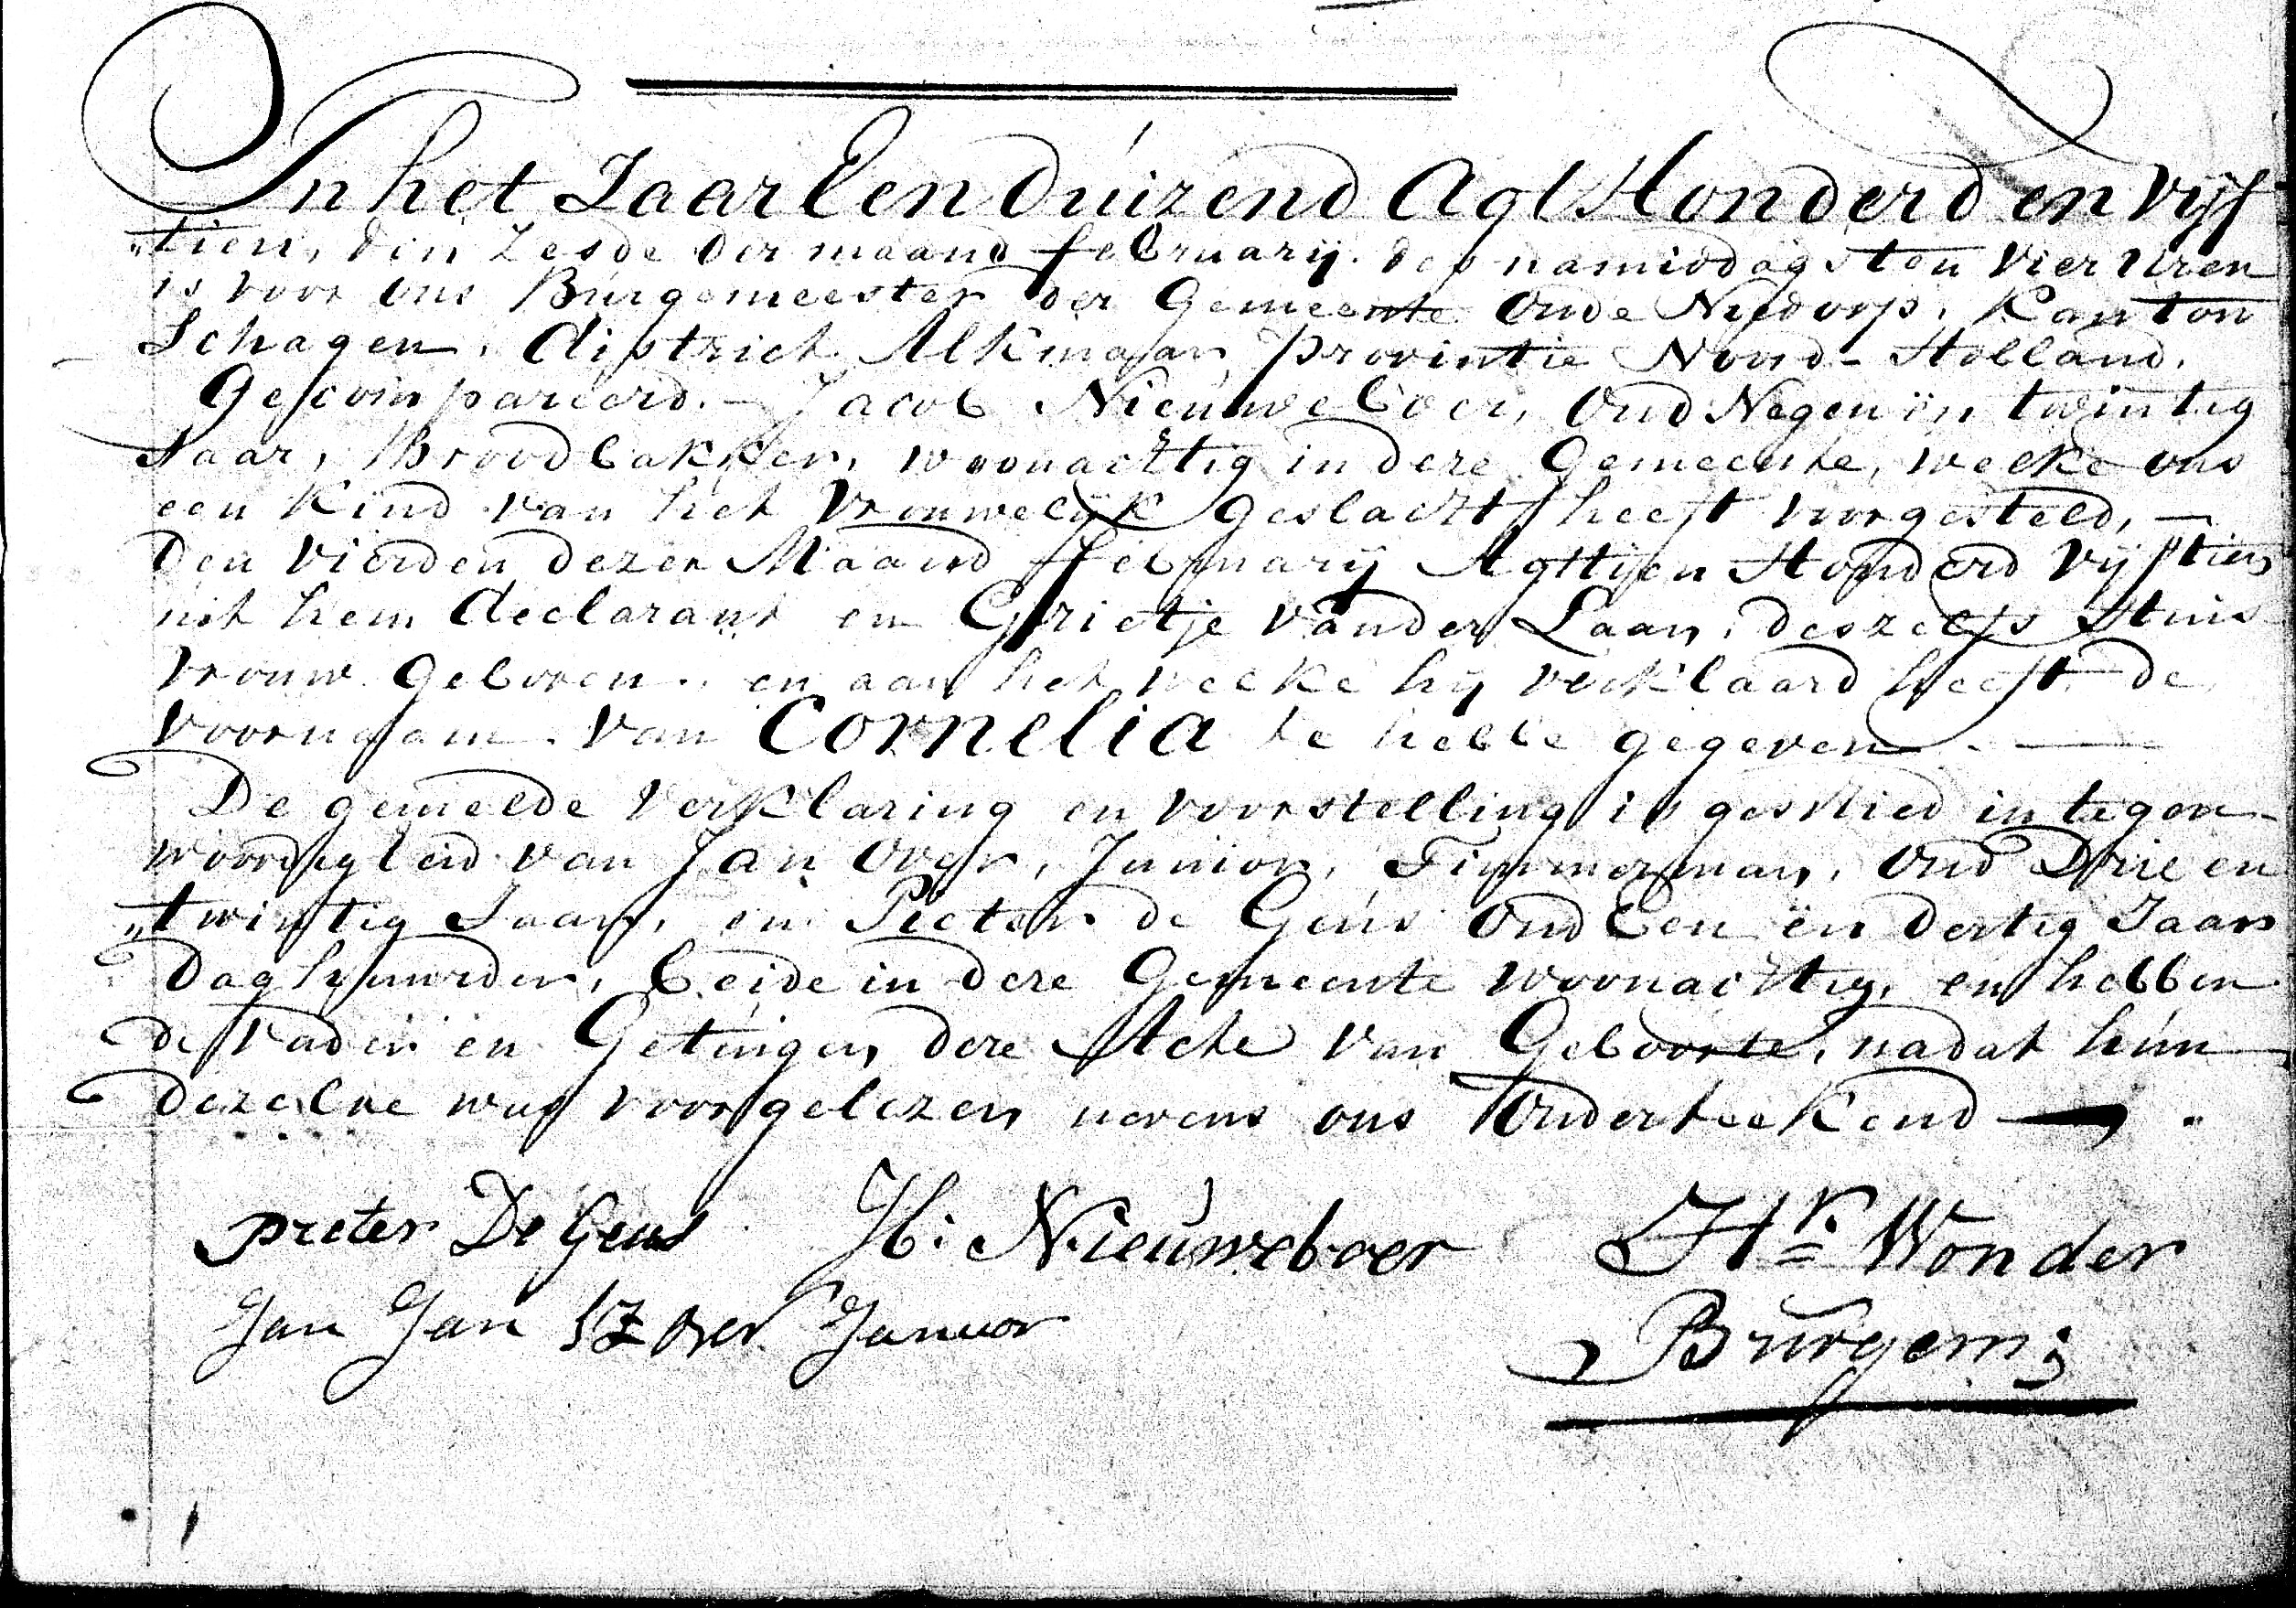 In het Jaar Een duizend Agt Honderd en vijf
„tien, den Zesde der maand february des namiddags ten vier uren
is voor ons Burgemeester der Gemeente Oude Niedorp, Kanton
Schagen, district Alkmaar provintie Noord-Holland.
Gecompareerd. – Jacob Nieuweboer, Oud Negen en twintig
Jaar, Broodbakker, woonachtig in deze Gemeente, welke ons
een Kind van het Vrouwelijk geslacht heeft voorgesteld, –
den vierden dezer Maand february Agttien Honderd Vijftien
uit hem declarant en Grietje van der Laan, deszelfs Huis
vrouw geboren, en aan het welke hij verklaard heeft de
voornaam van Cornelia te hebbe gegeven. —
De gemelde verklaring en voorstelling is geschied in tegen-
woordigheid van Jan Over, Junior, Timmerman, Oud Drie en
„twintig Jaar, en Pieter de Geus Oud Een en dertig Jaar
daghuurder, beide in deze Gemeente woonachtig, en hebben
de vader en Getuigen deze Acte van Geboorte, nadat hun
dezelve was voorgelezen nevens ons Onderteekend —
pieter De Geus J: Nieuweboer Hr. Wonder
Jan Jan SZ Over Junior Burgem;